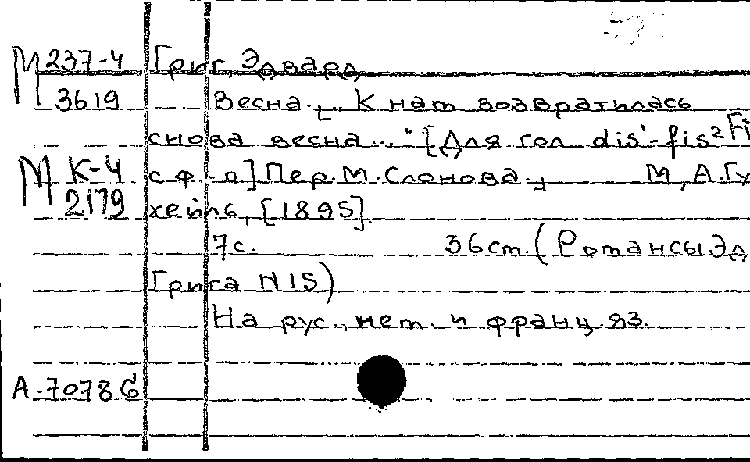 М 237-4 Григ Эдвард
3619 Весна. „К нам возвратилась
снова весна..." [Для гол dis'-fis² Fi
М К-4 с ф-п] Пер. М. Слонова. М, А. Гу
2179 хейль, [1895].
7с. 36см. (Романсы Эд
Грига N 15)
На рус., нем. и франц яз.
А-7078б